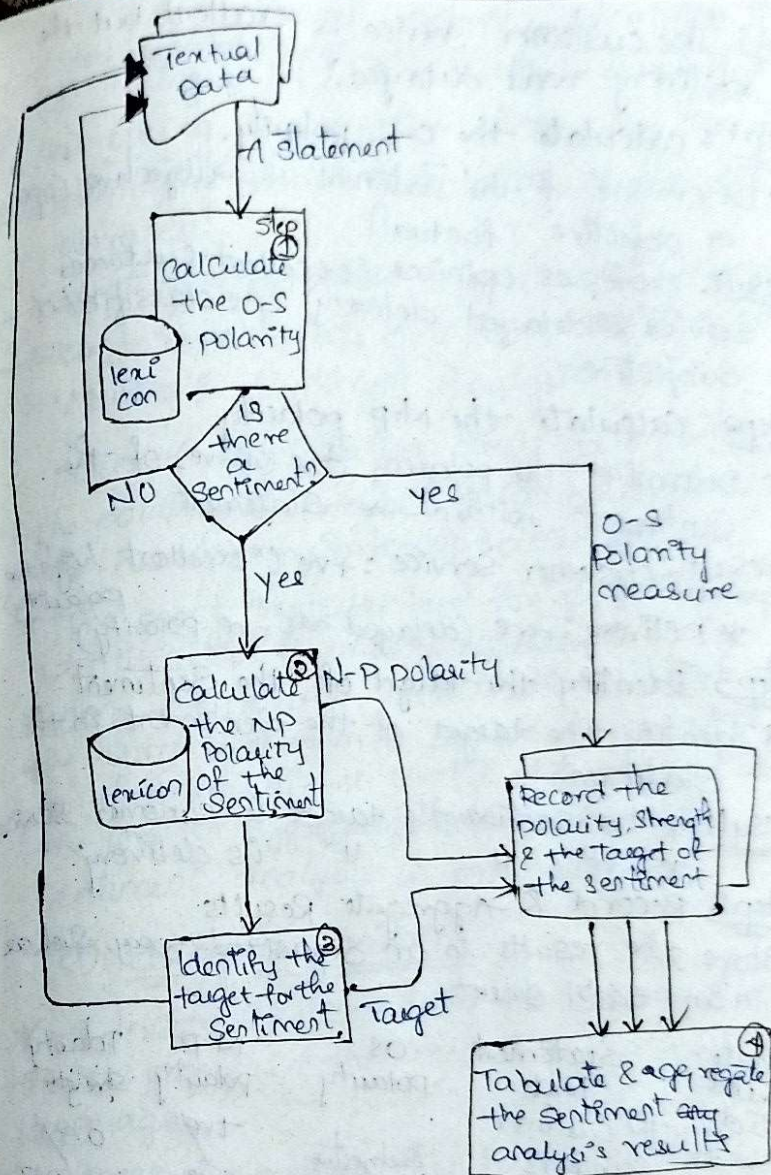 Textual
Data
A Statement
Step
①
Calculate
the O-S
polarity
lexi
con
Is
there
a
Sentiment?
NO
yes
yes
O-S
polarity
measure
②
Calculate
the NP
Polarity
of the
Sentiment
lexicon
N-P polarity
Record the
polarity, strength
& the target of
the sentiment
③
Identify the
target for the
Sentiment
Target
④
Tabulate & aggregate
the sentiment
analysis's results